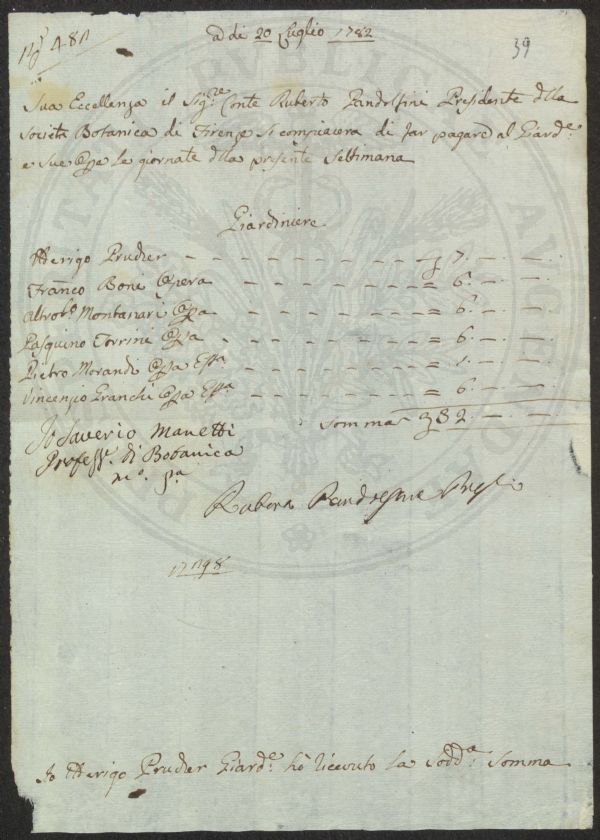 a di 20 Luglio 1782
39
Sua Eccellenza il Sigre. Conte Ruberto Pandolfini Presidente dlla
Società Botanica di Firenze si compiacera di far pagare al Giarde.
e sue Opre le giornate dlla presente Settimana
Giardiniere
Arrigo Prucker - - - - - - - - 7. - -. -.
Franco Boni Opera - - - - - - = 6. - -. -.
Montanari Opa - - - - - - = 6. - -. -.
Pasquino Torrini Opa - - - - - - = 6. - -. -.
Pietro Morandi Opa Espa - - - - - - = 1. - -. -.
Vincenzio Franchi Opa Espa - - - - - - = 6. - -. -.
Somma 32. - -. -.
Io Saverio Manetti
Professe. di Botanica
mo. pa
Pandolfini Presi
Io Arrigo Giarde. hò ricevuto la sodda. Somma